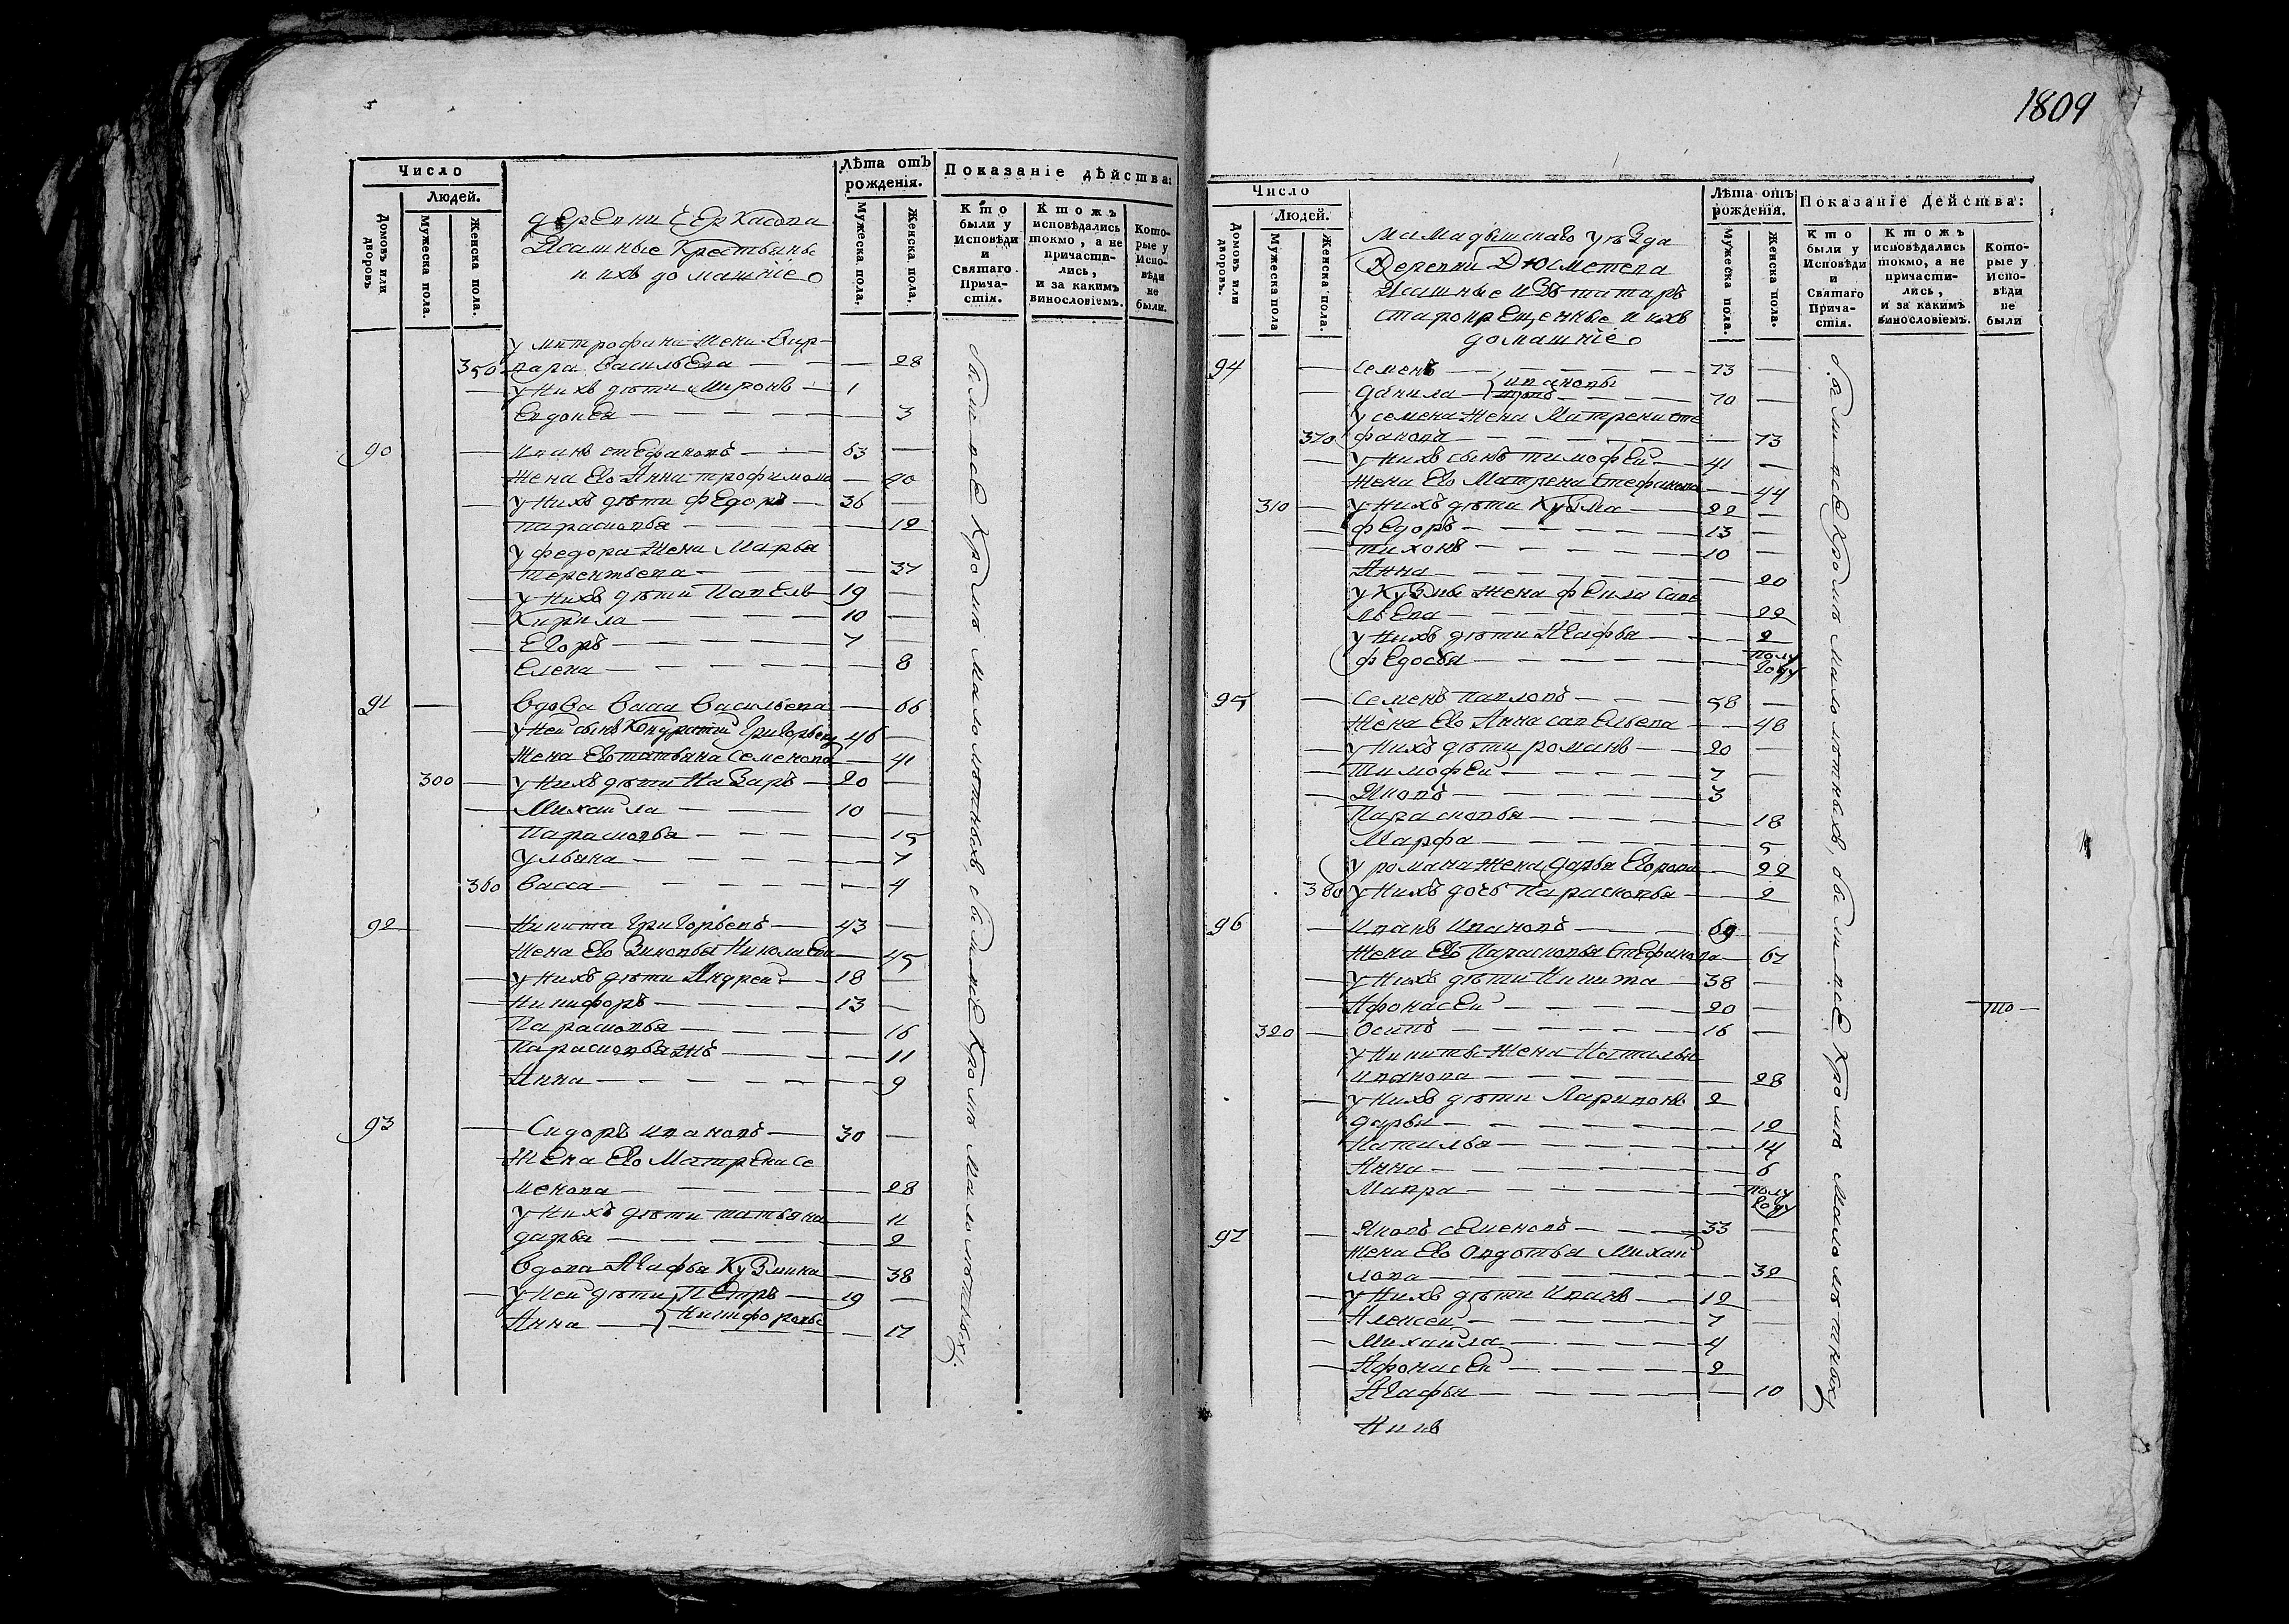 Число
Людей.
Домовъ или дворовъ
Мужеска пола.
Женска пола.
Деревни Черкасова
Ясашные Крестьяне
и ихъ домашніе
Лѣта отъ рожденія.
Мужеска пола.
Женска пола.
Показаніе дѣйства:
Кто были у Исповѣди и Святаго Прича-стія.
Ктожъ исповѣдались токмо, а не причасти-лись, и за какимъ винословіемъ.
Кото-рые у Испо-вѣди не были.
у митрофана жена Вар-
350 вара Васильева — 28
— у нихъ дѣти Миронъ — 1
Евдокея — 3
90 — Иванъ стефановъ — 63 —
жена Его Анна трофимова — 90
— у нихъ дѣти федоръ — 36 —
парасковья — 12
у федора жена Марья
терентьева — 37
— у нихъ дѣти Павелъ — 19 —
— Кирила — 10 —
— Егоръ — 7
Елена — 8
91 — Вдова Васа Васильева — 66
— у ней сынъ Кондратій Григорьевъ 46 —
жена Его татьяна семенова — 41
300 — у нихъ дѣти Назаръ — 20 —
— Михаила — 10 —
парасковья — 15
ульяна — 7
360 Васса — 4
92 — Никита Григорьевъ — 43 —
жена Его Зиновья Николаева — 45
— у нихъ дѣти Андрей — 18 —
— Никифоръ — 13 —
Парасковья — 16
Парасковьяжъ — 11
Анна — 9
93 — Сидоръ ивановъ — 30 —
жена Его Матрена се
менова — 28
у нихъ дѣти татьяна — 11
дарья — 2
Вдова Агафья Кузмина — 38
— у ней дѣти Петръ — 19 —
Анна — Никифоровы — 17
были все Кромѣ малолѣтныхъ, были все Кромѣ малолѣтныхъ.
1809
Число
Людей.
Домовъ или дворовъ.
Мужеска пола
Женска пола.
мамадышскаго уѣзда
Деревни Дюсметева
Ясашные изъ татаръ
старокрещенные и ихъ
домашніе
Лѣта отъ рожденія.
Мужеска пола.
Женска пола.
Показаніе Дейсшва:
Кто были у Исповѣди и Святаго Прича-стія.
Ктожъ исповѣдались токмо, а не причасти-лись, и за какимъ винословіемъ.
Кото-рые у Испо-вѣди не были
94 — семенъ — 73 —
— данила — ивановы — 70 —
у семена жена Матрена сте
370 фанова — 73
— у нихъ сынъ тимофей — 41 —
жена Его Матрена стефанова — 44
310 — у нихъ дѣти Кузма — 22 —
— федоръ — 13 —
— тихонъ — 10 —
Анна — 20
у Кузмы жена фекла саве
льева — 22
у нихъ дѣти Агафья — 2
федосья — полу году
95 — семенъ павловъ — 58 —
жена Его Анна савельева — 48
— у нихъ дѣти романъ — 20 —
— тимофей — 7 —
— Яковъ — 3
парасковья — 18
Марфа — 5
у романа жена дарья Егорова — 22
380 у нихъ дочь парасковья — 2
96 — иванъ ивановъ — 69 —
жена Его Парасковья стефанова — 67
— у нихъ дѣти Никита — 38 —
— Афонасей — 20 — то —
320 — осипъ — 16 —
у Никиты жена Наталья
иванова — 28
— у нихъ дѣти Ларивонъ 2
дарья — 12
Наталья — 14
Анна — 6
Мавра — полу году
97 — Яковъ семеновъ — 33 —
жена Его Овдотья михай
лова — 32
— у нихъ дѣти иванъ — 12 —
— Алексей — 7 —
— михаила — 4
— Афонасей — 2
Агафья — 10
были все Кромѣ малолѣтныхъ, были все Кромѣ малолѣтныхъ